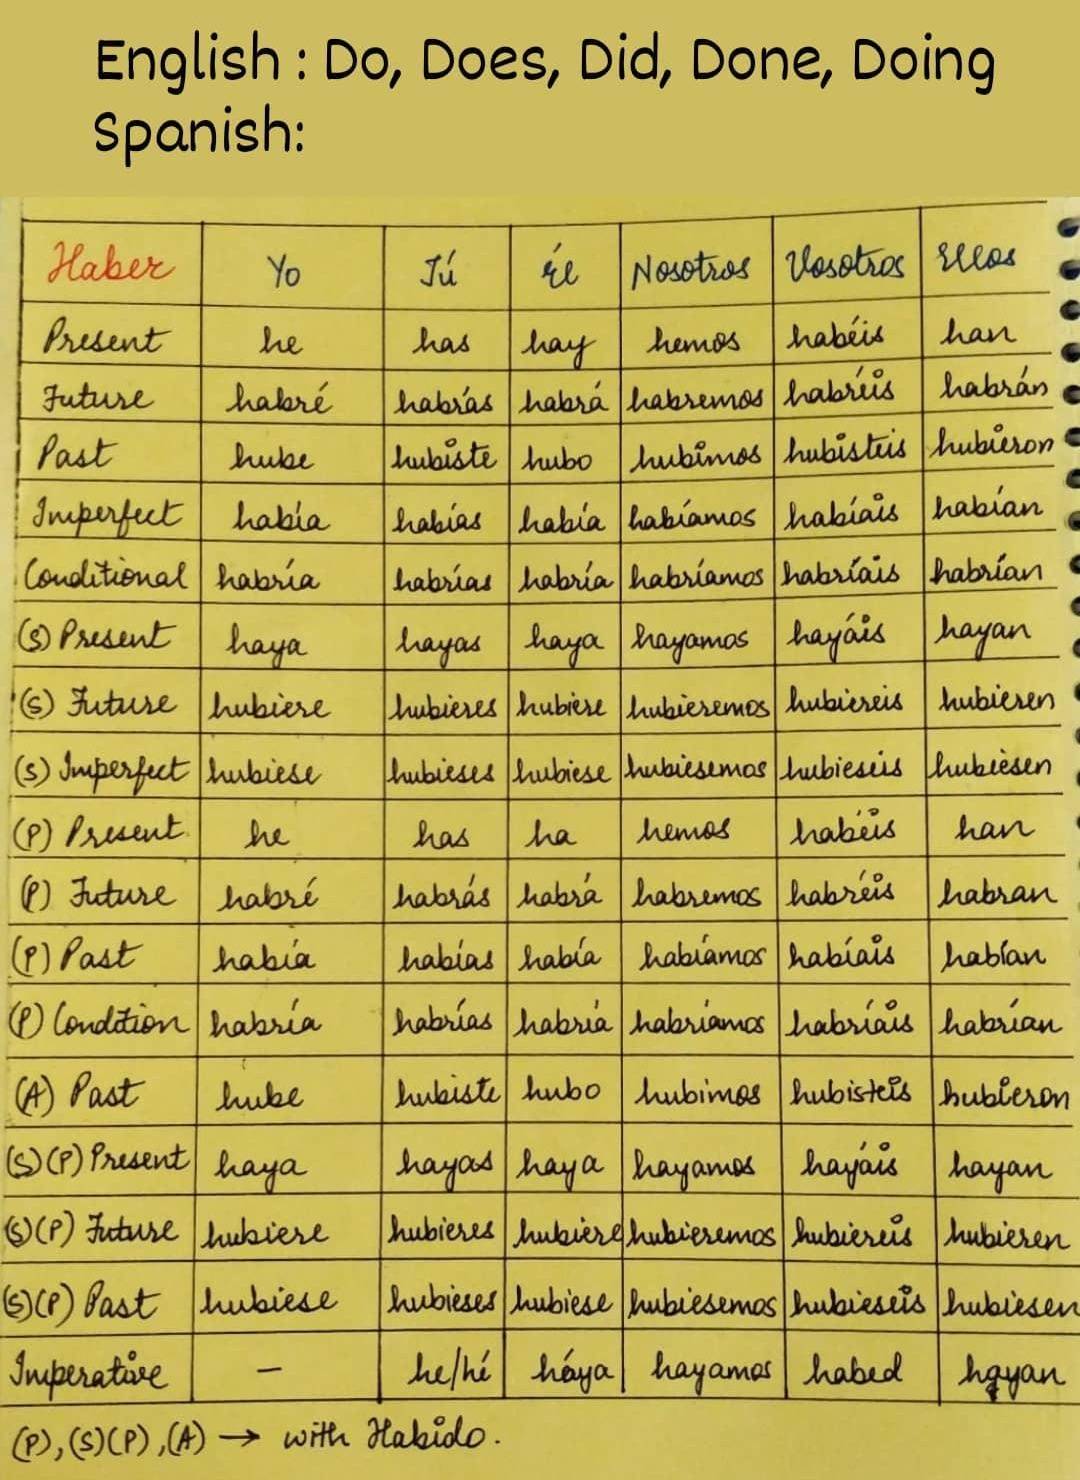 English : Do, Does, Did, Done, Doing
Spanish:
Haber Yo Tú él Nosotros Vosotros Ellos
Present he has hay hemos habéis han
Future habré habrás habrá habremos habréis habrán
Past hube hubiste hubo hubimos hubisteis hubieron
Imperfect había habías había habíamos habíais habían
Conditional habría habrías habría habríamos habríais habrían
(S) Present haya hayas haya hayamos hayáis hayan
(S) Future hubiere hubieres hubiere hubieremos hubiereis hubieren
(S) Imperfect hubiese hubieses hubiese hubiesemos hubieseis hubiesen
(P) Present he has ha hemos habéis han
(P) Future habré habrás habrá habremos habréis habran
(P) Past había habías había habíamos habíais habían
(P) Condition habría habrías habría habríamos habríais habrían
(A) Past hube hubiste hubo hubimos hubisteis hubieron
(S)(P) Present haya hayas haya hayamos hayáis hayan
(S)(P) Future hubiere hubieres hubiere hubieremos hubiereis hubieren
(S)(P) Past hubiese hubieses hubiese hubiesemos hubieseis hubiesen
Imperative – he/hé háya hayamos habed hayan
(P), (S)(P), (A) → with Habido.